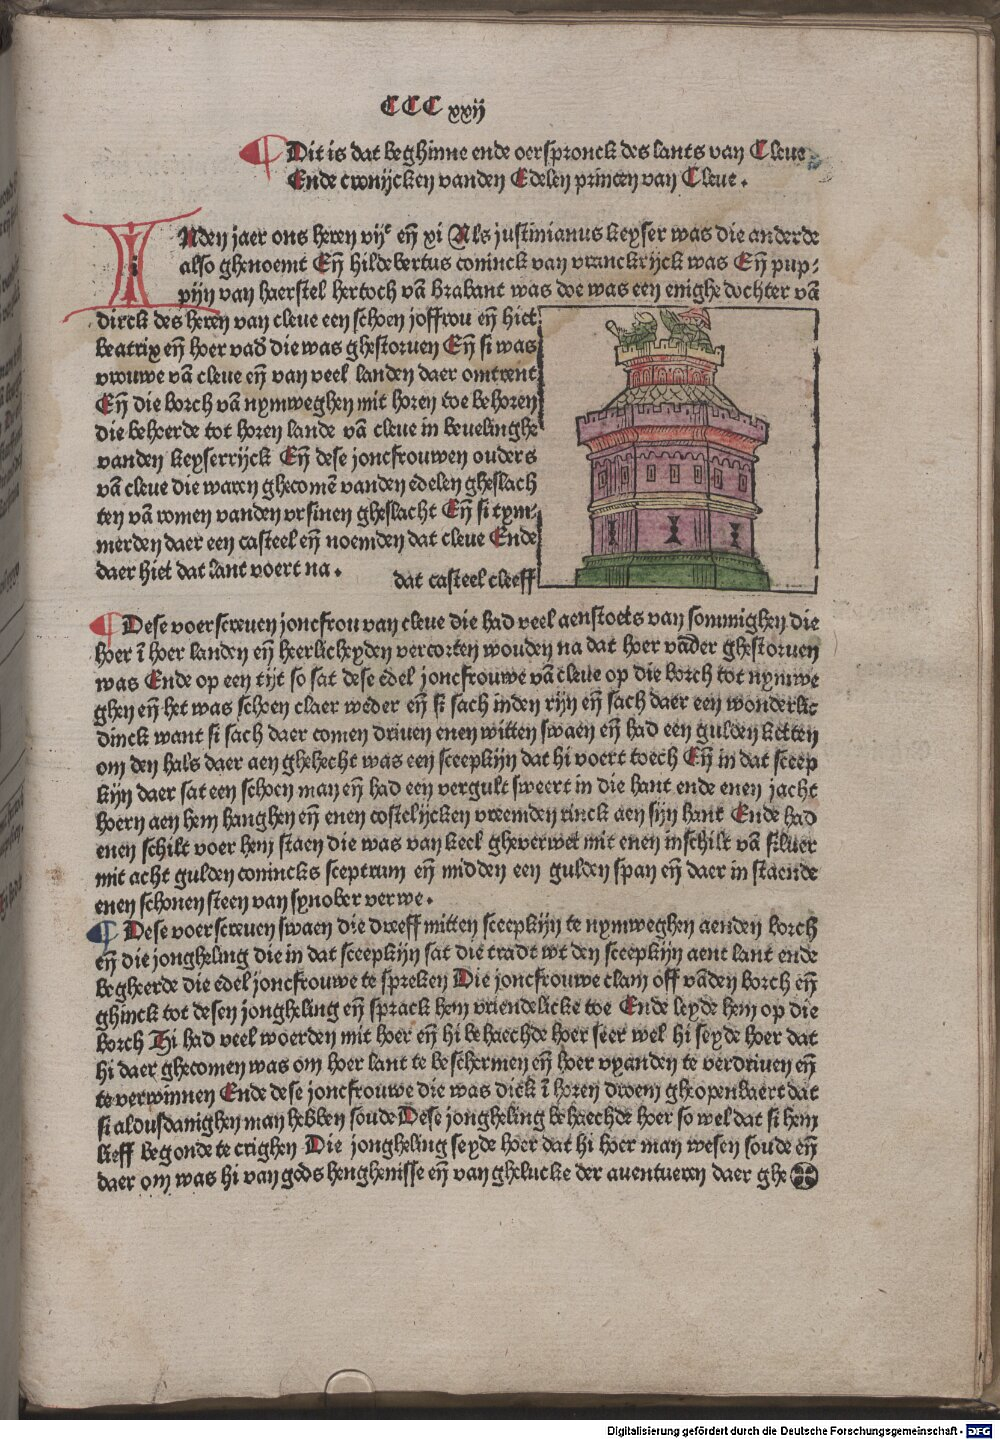 CCC xxij
Dit is dat beghinne ende oerspronck des lants van Cleue
Ende cronijcken vanden Edelen princen van Cleue.
INden jaer ons heren vijᶜ eñ xi Als justinianus keyser was die anderde
also ghenoemt Eñ hildebertus coninck van vranckrijck was Eñ pup-
pijn van haerstel hertoch vā brabant was doe was een enighe dochter vā
dirck des heren van cleue een schoen joffrou eñ hiet
beatrix eñ hoer vad̄ die was ghestoruen Eñ si was
vrouwe vā cleue eñ van veel landen daer omtrent
Eñ die borch vā nymweghen mit horen toe behoren
die behoerde tot horen lande vā cleue in beuelinghe
vanden keyserrijck Eñ dese joncfrouwen ouders
vā cleue die waren ghecomē vanden edelen gheslach
ten vā romen vanden vrsinen gheslacht Eñ si tym-
merden daer een casteel eñ noemden dat cleue Ende
daer hiet dat lant voert na.
dat casteel cleeff
Dese voerscreuen joncfrou van cleue die had veel aenstoets van sommighen die
hoer ī hoer landen eñ heerlicheyden vercorten wouden na dat hoer vād̄er ghestoruen
was Ende op een tijt so sat dese edel joncfrouwe vā cleue op die borch tot nymwe
ghen eñ het was schoen claer weder eñ si sach inden rijn eñ sach daer een wonderlic
dinck want si sach daer comen driuen enen witten swaen eñ had een gulden ketten
om den hals daer aen ghehecht was een sceepkijn dat hi voert toech Eñ in dat sceep
kijn daer sat een schoen man eñ had een vergult sweert in die hant ende enen jacht
hoern aen hem hanghen eñ enen costelijcken vreemden rinck aen sijn hant Ende had
enen schilt voer hem staen die was van keel gheverwet mit enen inschilt vā siluer
mit acht gulden conincks sceptrum eñ midden een gulden span eñ daer in staende
enen schonen steen van synober verwe.
Dese voerscreuen swaen die dreeff mitten sceepkijn te nymweghen aenden borch
eñ die jongheling die in dat sceepkijn sat die tradt wt den sceepkijn aent lant ende
begheerde die edel joncfrouwe te spreken Die joncfrouwe clam off vāden borch eñ
ghinck tot desen jongheling eñ sprack hem vriendelicke toe Ende leyde hem op die
borch Hi had veel woerden mit hoer eñ hi behaechde hoer seer wel hi seyde hoer dat
hi daer ghecomen was om hoer lant te beschermen eñ hoer vyanden te verdriuen eñ
te verwinnen Ende dese joncfrouwe die was dick ī horen droem gheopenbaert dat
si aldusdanighen man hebben soude Dese jongheling behaechde hoer so wel dat si hem
lieff begonde te crighen Die jongheling seyde hoer dat hi hoer man wesen soude eñ
daer om was hi van gods henghenisse eñ van ghelucke der auentueren daer ghe
Digitalisierung gefördert durch die Deutsche Forschungsgemeinschaft - DFG